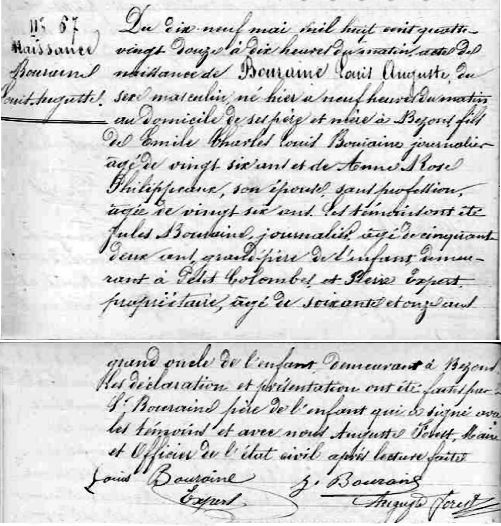 N° 67
Naissance
Bouraine
Louis Auguste.
Du dix neuf mai, mil huit cent quatre-
vingt douze à dix heures du matin, acte de
naissance de Bouraine Louis Auguste, du
sexe masculin né hier à neuf heures du matin
au domicile de ses père et mère à Bezons fils
de Emile Charles Louis Bouraine journalier
âgé de vingt six ans et de Anne Rose
Philippeaux, son épouse, sans profession,
âgée de vingt six ans. Les témoins ont été
Jules Bouraine, journalier, âgé de cinquante
deux ans, grand père de l'enfant demeu-
rant à Petit Colombes et Pierre Expert
propriétaire, âgé de soixante et onze ans
grand oncle de l'enfant, demeurant à Bezons
les déclaration et présentation ont été faites par
Sr Bouraine père de l'enfant qui a signé avec
les témoins et avec nous Auguste Forest, Maire
et Officier de l'état civil après lecture faite
Louis Bouraine J. Bouraine
Expert Auguste Forest